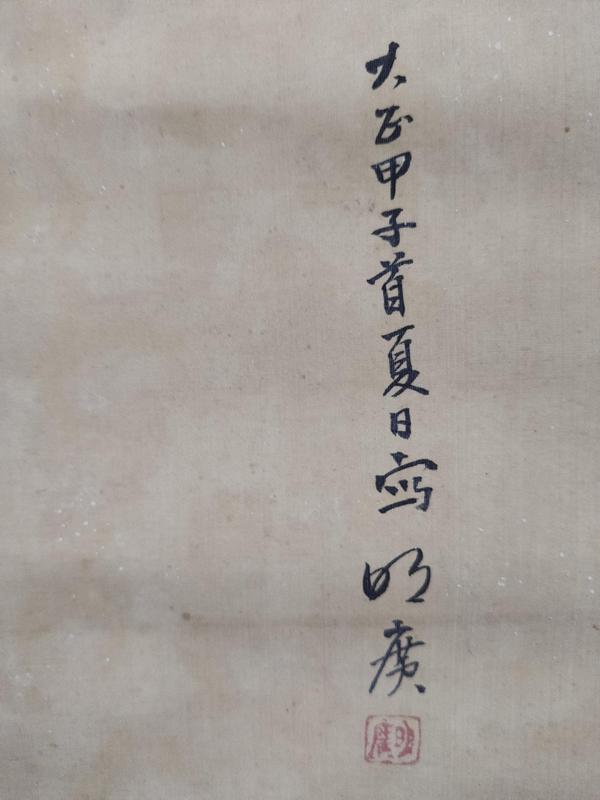 大正甲子首夏日写 明廣
明廣